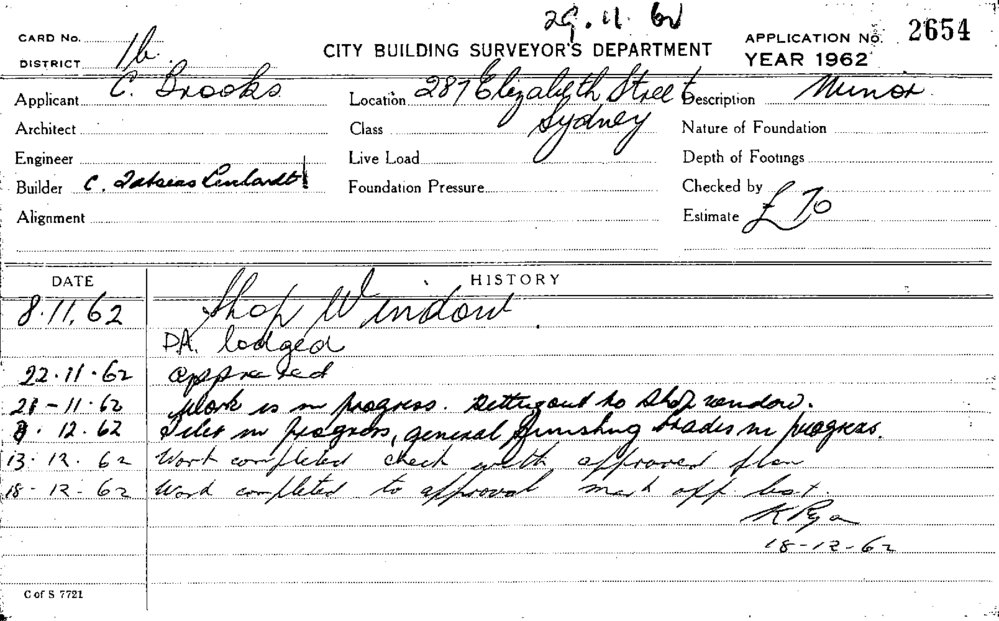 29.11.62
CARD No.
DISTRICT 1b
CITY BUILDING SURVEYOR'S DEPARTMENT
APPLICATION No. 2654
YEAR 1962
Applicant C. Brooks
Location 287 Elizabeth Street
Sydney
Description Minor
Architect
Class
Nature of Foundation
Engineer
Live Load
Depth of Footings
Builder C. Leichardt
Foundation Pressure
Checked by
Alignment
Estimate £70
DATE
HISTORY
8.11.62 Shop Window
D.A. lodged
22.11.62 approved
21-11-62 Work is in progress. Setting out to Shop window.
12.62 in progress, general finishing trades in progress.
13.12.62 Work completed check with approved plan
18-12-62 Work completed to approval mark off list.
K Ryan
18-12-62
C of S 7721